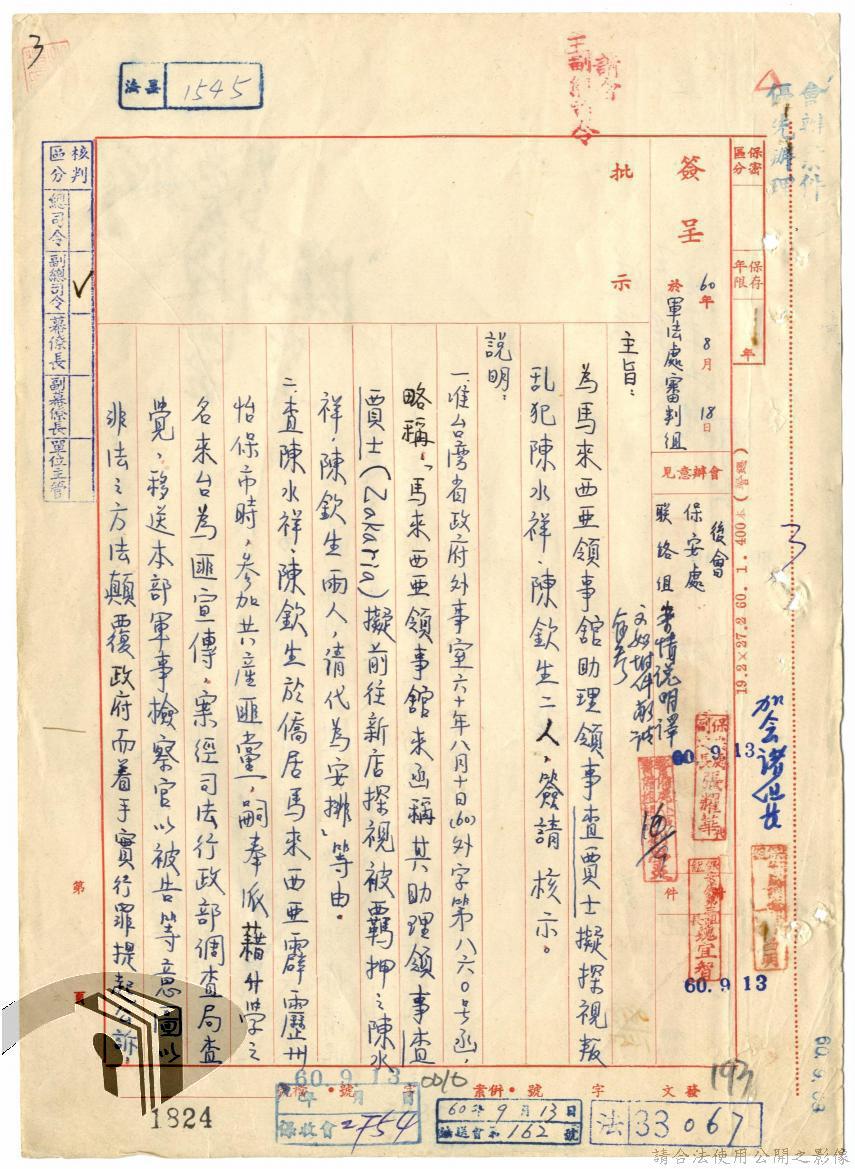 3
法墨 1545
請會
王副總司令
會辦案件
優先辦理
保密區分
保存年限
年
簽呈
60年8月18日
於軍法處審判組
會辦意見
後會
保安處
聯絡組
60.9.13
張耀華
加會諸組長
件
魏宜智
60.9.13
19.2×27.2 60.1.400本
批示
核判區分
總司令
副總司令 ✓
幕僚長
副幕僚長
單位主管
主旨：
為馬來西亞領事館助理領事查賈士擬探視叛
乱犯陳水祥、陳欽生二人，簽請核示。
說明：
一、准台湾省政府外事室六十年八月十日(60)外字第八六〇号函，
略稱：「馬來西亞領事館來函稱其助理領事查
賈士(Zakaria)擬前往新店探視被羈押之陳水
祥、陳欽生兩人，請代為安排」等由。
二、查陳水祥、陳欽生於僑居馬來西亞霹靂州
怡保市時，參加共产匪黨，嗣奉派藉升學之
名來台為匪宣傳，案經司法行政部调查局查
覺，移送本部軍事檢察官以被告等意圖以
非法之方法顛覆政府而着手實行罪提起公訴，
第
頁
1824
60.9.13
年月日
保收會 2754
0010
號·併案
60年9月13日
法送會和162號
發文
字
法 33067
193
60.9.13
請合法使用公開之影像